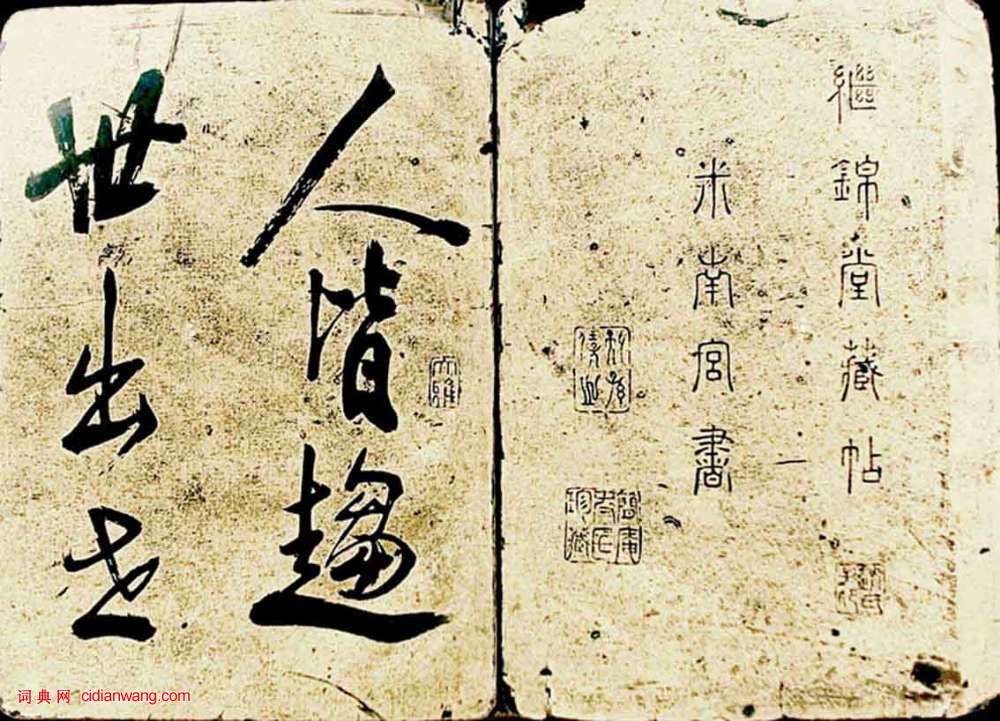 繼錦堂藏帖
米南宮書
人皆趨
大雅
世出世
词典网 cidianwang.com